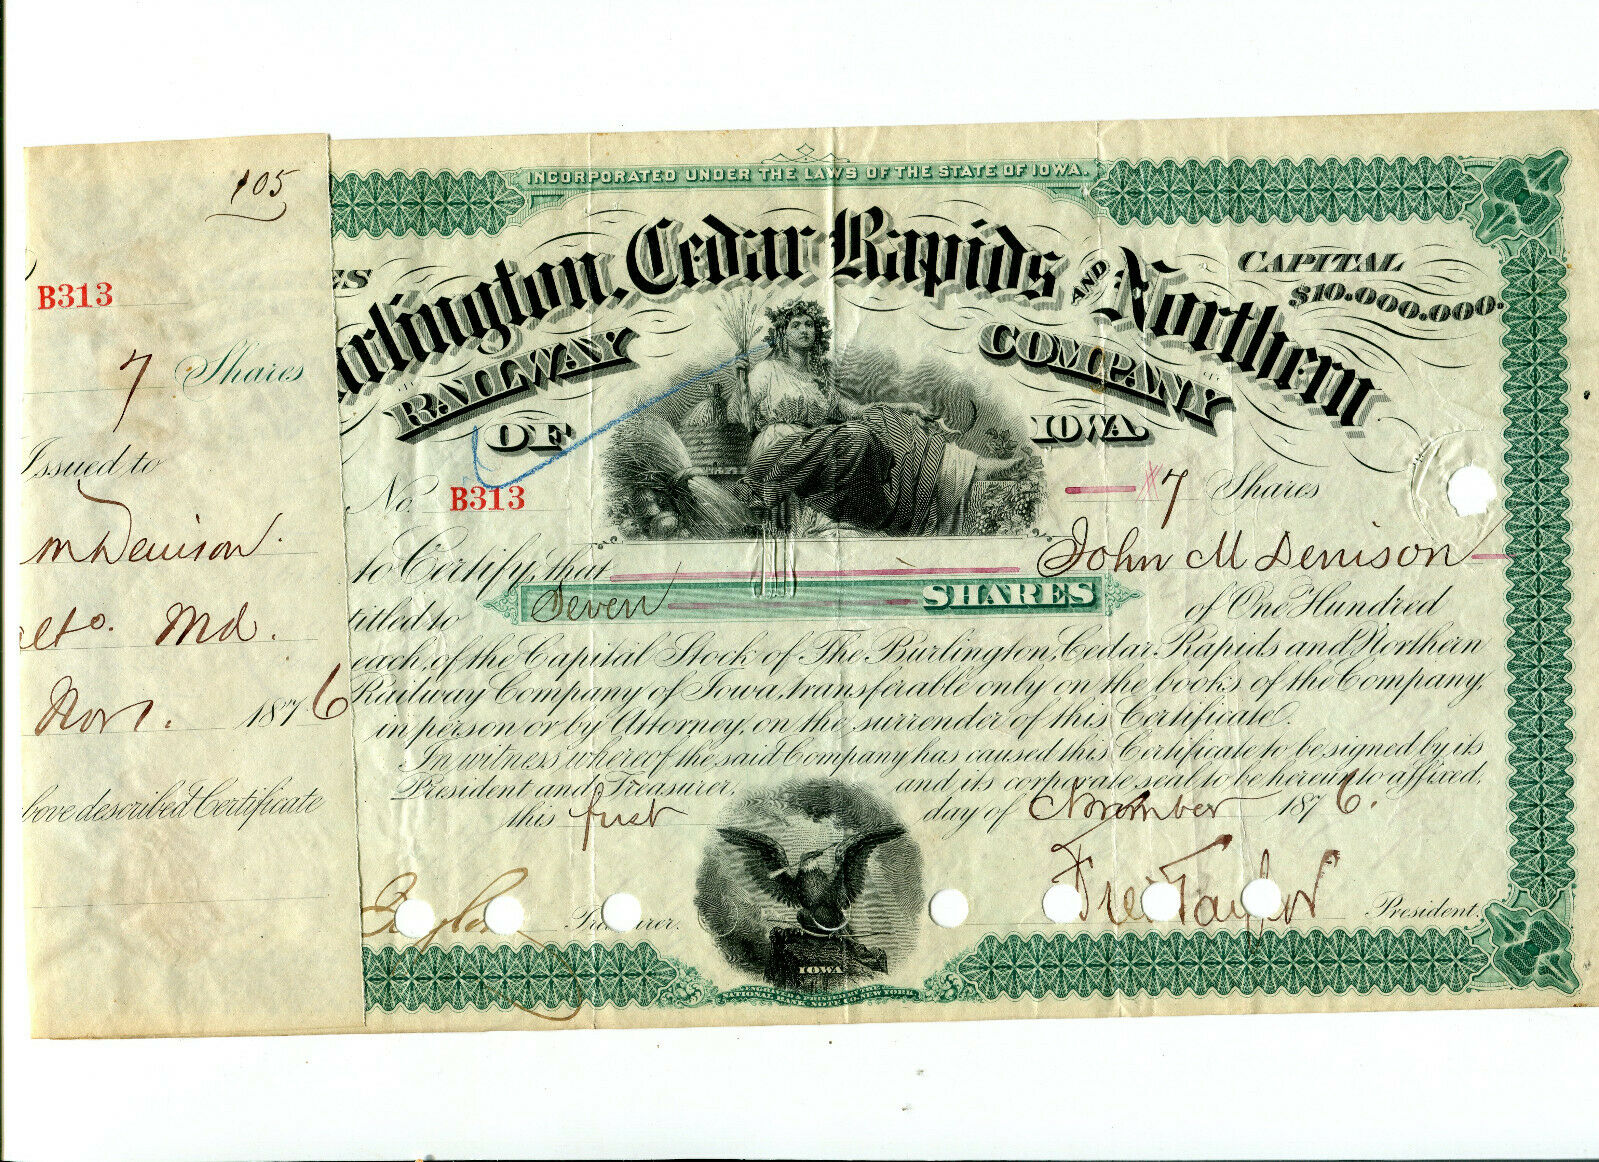 105
B313
7 Shares
Issued to
m Denison.
alto. Md.
Nov 1. 1876
bove described Certificate
INCORPORATED UNDER THE LAWS OF THE STATE OF IOWA.
ES
urlington, Cedar Rapids AND Northern
CAPITAL
$10.000.000.
RAILWAY COMPANY
OF IOWA.
No. B313
7 Shares
to Certify, that John M Denison
titled to Seven SHARES of One Hundred
each, of the Capital Stock of The Burlington, Cedar Rapids and Northern
Railway Company of Iowa, transferable only on the books of the Company,
in person or by Attorney, on the surrender of this Certificate.
In witness whereof the said Company has caused this Certificate to be signed by its
President and Treasurer, and its corporate seal to be hereunto affixed,
this first day of November 1876.
Treasurer.
Taylor President.
IOWA
ENGRAVED & PRINTED BY THE
NATIONAL BANK NOTE CO. NEW YORK.